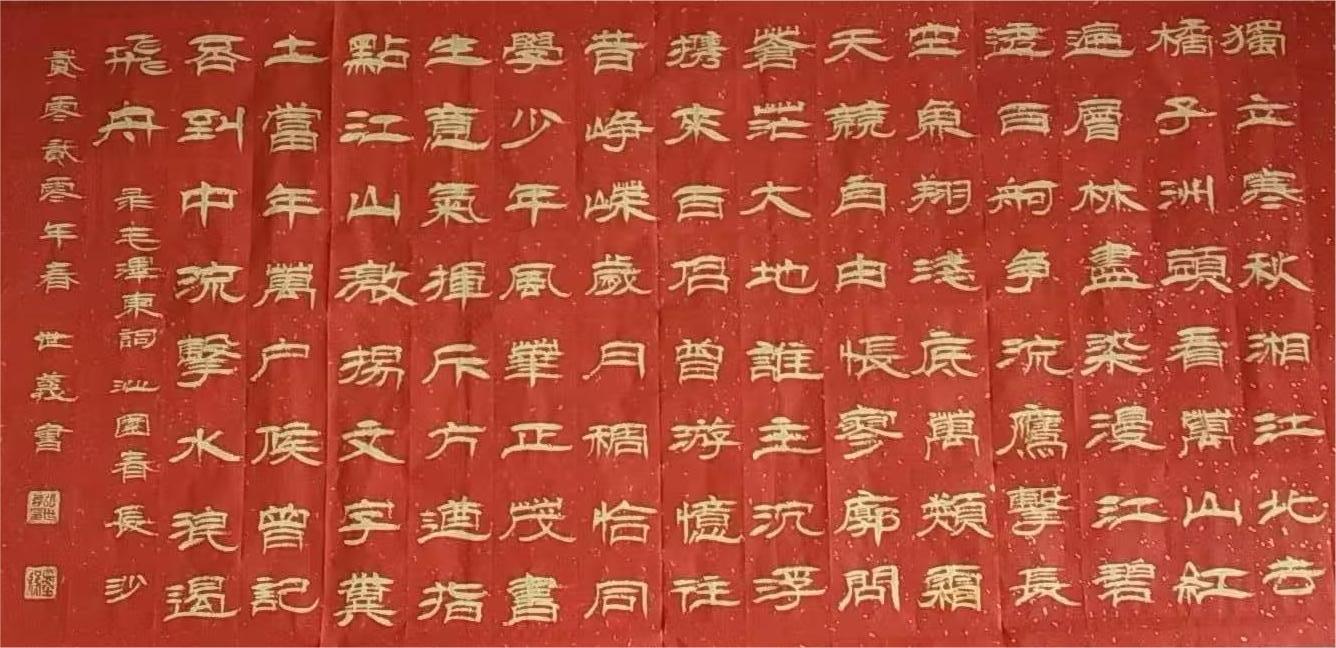 獨立寒秋湘江北去
橘子洲頭看萬山紅
遍層林盡染漫江碧
透百舸争流鷹擊長
空魚翔淺底萬類霜
天競自由悵寥廓問
蒼茫大地誰主沉浮
携來百侶曾游憶往
昔崢嶸歲月稠恰同
學少年風華正茂書
生意氣揮斥方遒指
點江山激揚文字糞
土當年萬户侯曾記
否到中流擊水浪遏
飛舟 录毛澤東詞 沁園春 長沙
貳零貳零年春 世義書